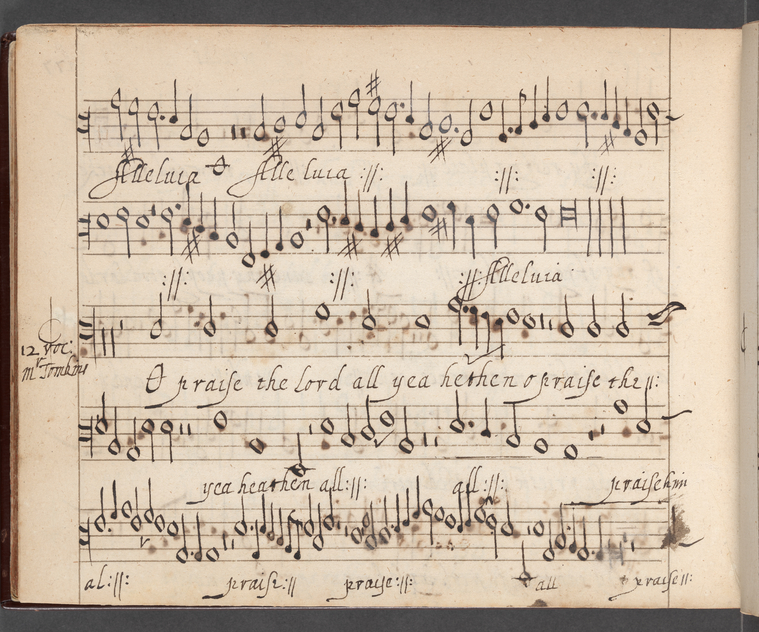 Alleluia O Alle luia :||: :||: :||:
:||: :||: :||: Alleluia
12 voc:
Mr Tomkins
O praise the lord all yea hethen o praise the :||:
yea heathen all :||: all :||: praise him
al :||: praise :|| praise :||: all praise :||: